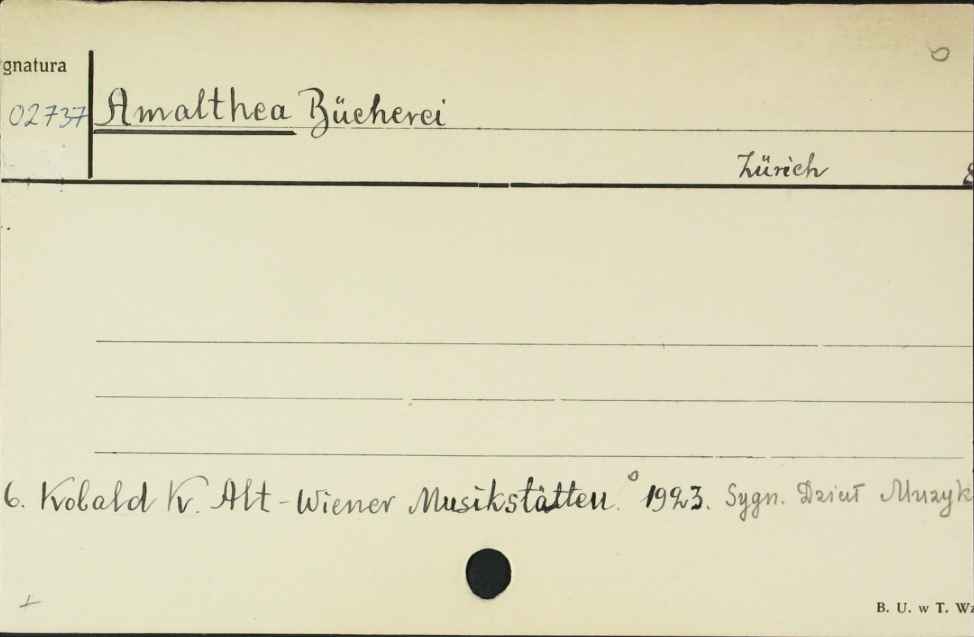 gnatura
02737 Amalthea Bücherei
Zürich 8
6. Kobald K. Alt-Wiener Musikstätten. 1923. Sygn. Dział Muzyk
B. U. w T. Wz